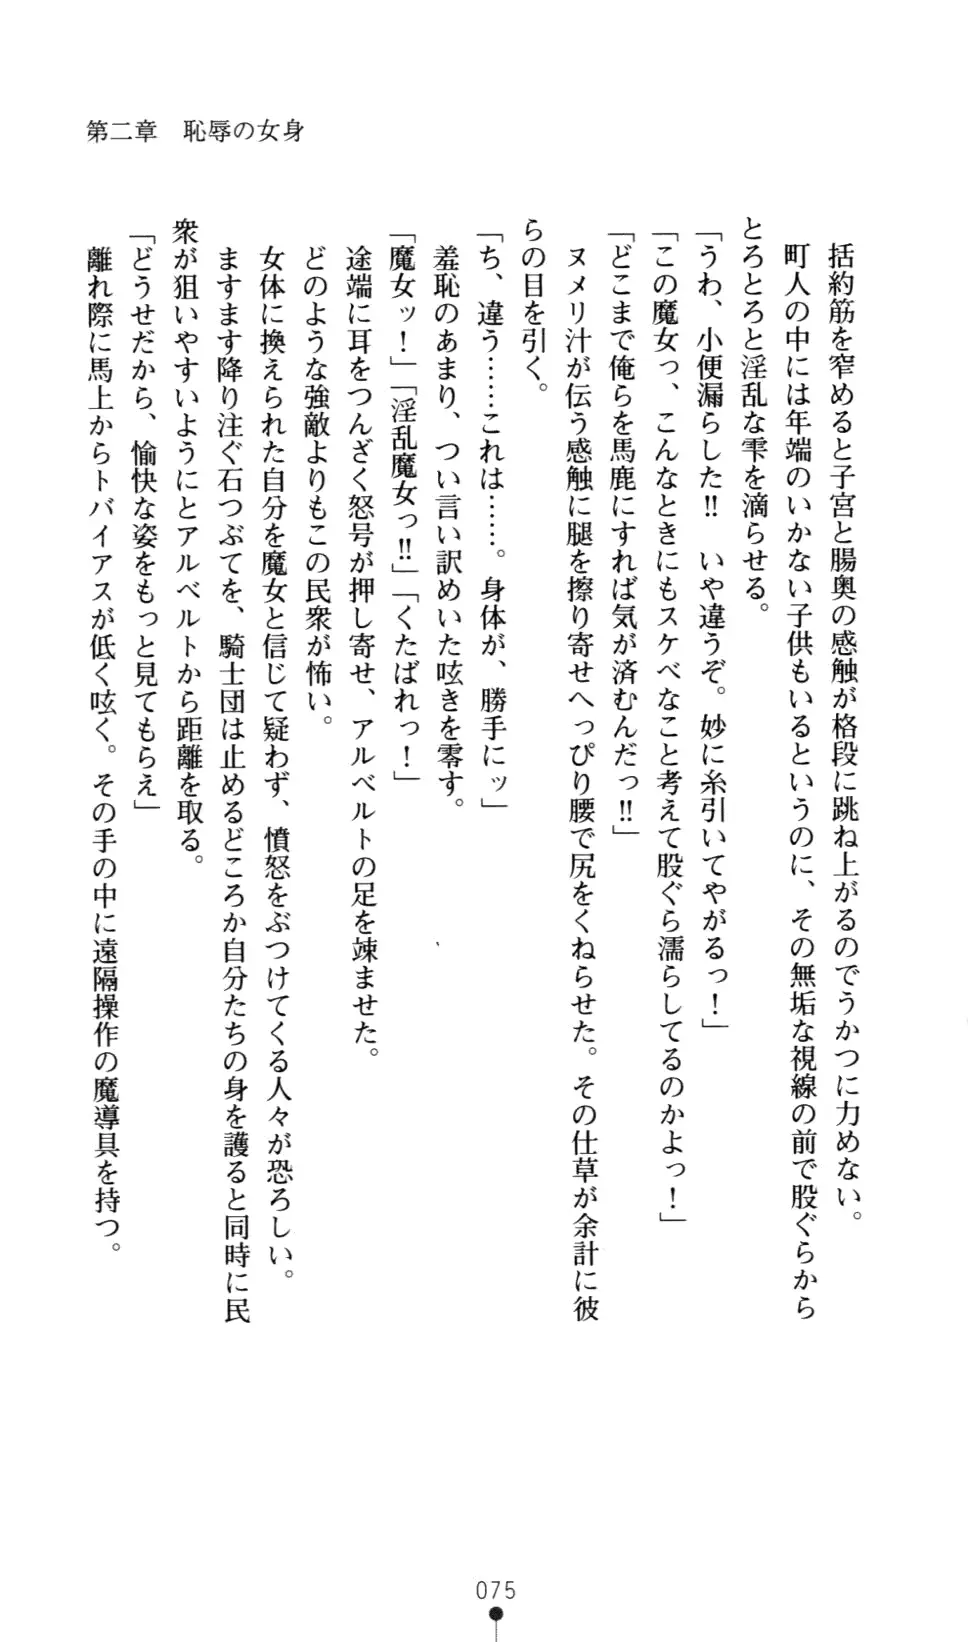 第二章　恥辱の女身
括約筋を窄めると子宮と腸奥の感触が格段に跳ね上がるのでうかつに力めない。
町人の中には年端のいかない子供もいるというのに、その無垢な視線の前で股ぐらから
とろとろと淫乱な雫を滴らせる。
「うわ、小便漏らした‼　いや違うぞ。妙に糸引いてやがるっ！」
「この魔女っ、こんなときにもスケベなこと考えて股ぐら濡らしてるのかよっ！」
「どこまで俺らを馬鹿にすれば気が済むんだっ‼」
ヌメリ汁が伝う感触に腿を擦り寄せへっぴり腰で尻をくねらせた。その仕草が余計に彼
らの目を引く。
「ち、違う……これは……。身体が、勝手にッ」
羞恥のあまり、つい言い訳めいた呟きを零す。
「魔女ッ！」「淫乱魔女っ‼」「くたばれっ！」
途端に耳をつんざく怒号が押し寄せ、アルベルトの足を竦ませた。
どのような強敵よりもこの民衆が怖い。
女体に換えられた自分を魔女と信じて疑わず、憤怒をぶつけてくる人々が恐ろしい。
ますます降り注ぐ石つぶてを、騎士団は止めるどころか自分たちの身を護ると同時に民
衆が狙いやすいようにとアルベルトから距離を取る。
「どうせだから、愉快な姿をもっと見てもらえ」
離れ際に馬上からトバイアスが低く呟く。その手の中に遠隔操作の魔導具を持つ。
075